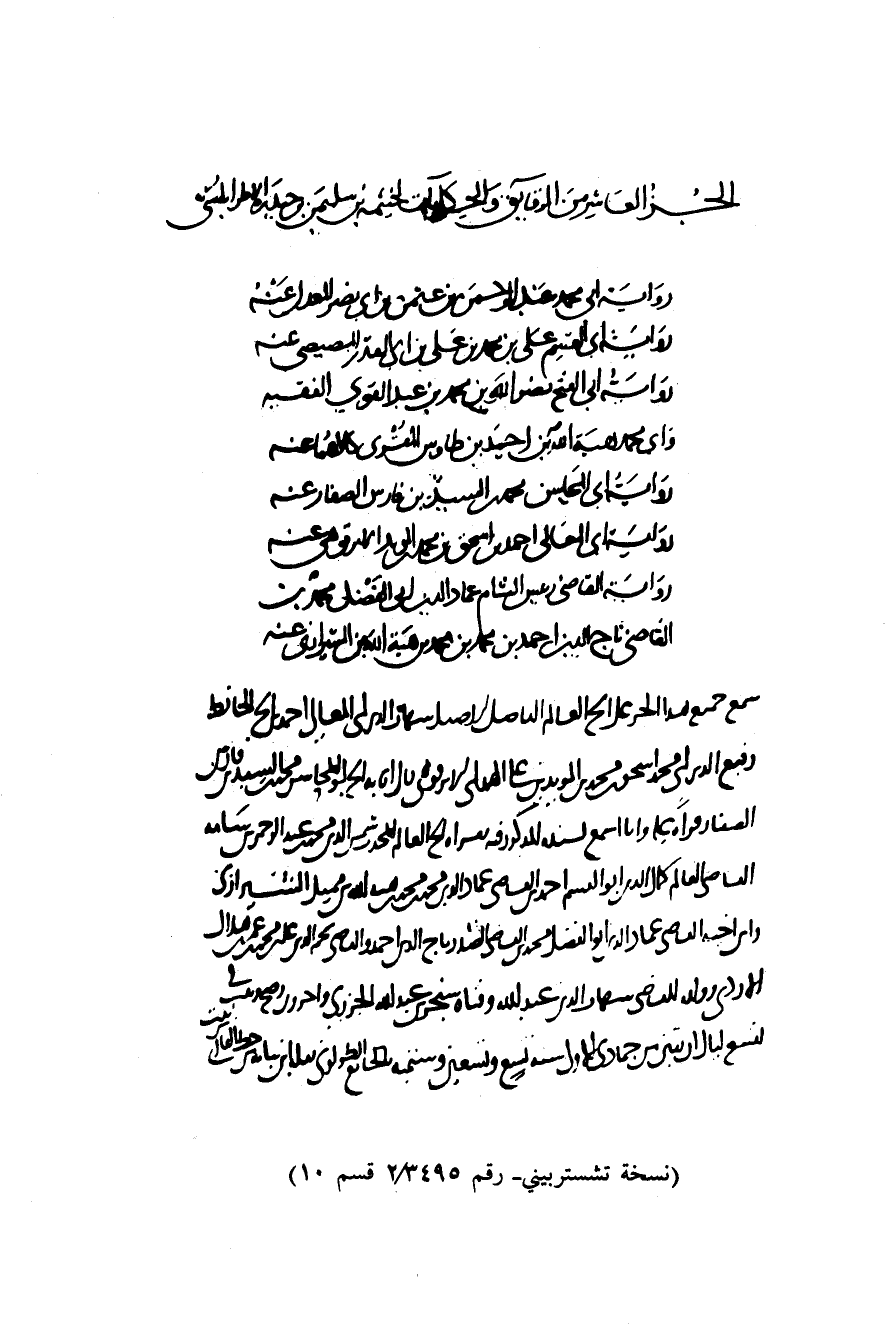 الجزء العاشر من الرقايق والحكايات لخيثمة بن سليمن بن حيدرة الاطرابلسي
رواية ابي محمد عبد الرحمن بن عثمن بن ابي نصر المعدل عنه
رواية ابي القسم علي بن محمد بن علي بن ابي العلا المصيصي عنه
رواية ابي الفتح نصر الله بن محمد بن عبد القوي الفقيه
وابي محمد هبة الله بن احمد بن طاوس المقري كلاهما عنه
رواية ابي المحاسن محمد بن السيد بن فارس الصفار عنه
رواية ابي المعالي احمد بن اسحق بن محمد بن المويد الابرقوهي عنه
رواية القاضي رئيس الشام عماد الدين ابي الفضل محمد بن
القاضي تاج الدين احمد بن محمد بن محمد بن هبة الله بن الشيرازي عنه
سمع جميع هدا الجز على الشيخ العالم الفاضل الاصيل شهاب الدين ابي المعالي احمد بن الشيخ الحافظ
رفيع الدين ابي محمد اسحق بن محمد بن المويد بن علي الهمداني الابرقوهي انا به الشيخ ابو المحاسن محمد بن السيد بن فارس
الصفار قراة عليه وانا اسمع بسنده المذكور فيه بقراة الشيخ العالم المحدث شمس الدين محمد بن عبد الرحمن بن سامه
القاضي العالم كمال الدين ابو القسم احمد بن القاضي عماد الدين محمد بن محمد بن هبة الله بن مميل الشيرازي
وابن اخيه القاضي عماد الدين ابو الفضل محمد بن القاضي الصدر تاج الدين احمد والقاضي نجم الدين علي بن محمد بن عمر بن هلال
الازدي وولده القاضي شهاب الدين عبد الله وفتاه سنجر بن عبد الله الجزري واخرون وصح وثبت في
لتسع ليال ان بقين من جمادى الاول سنه تسع وتسعين وستميه بالجامع
(نسخة تشستربيتي- رقم ٢/٣٤٩٥ قسم ١٠)